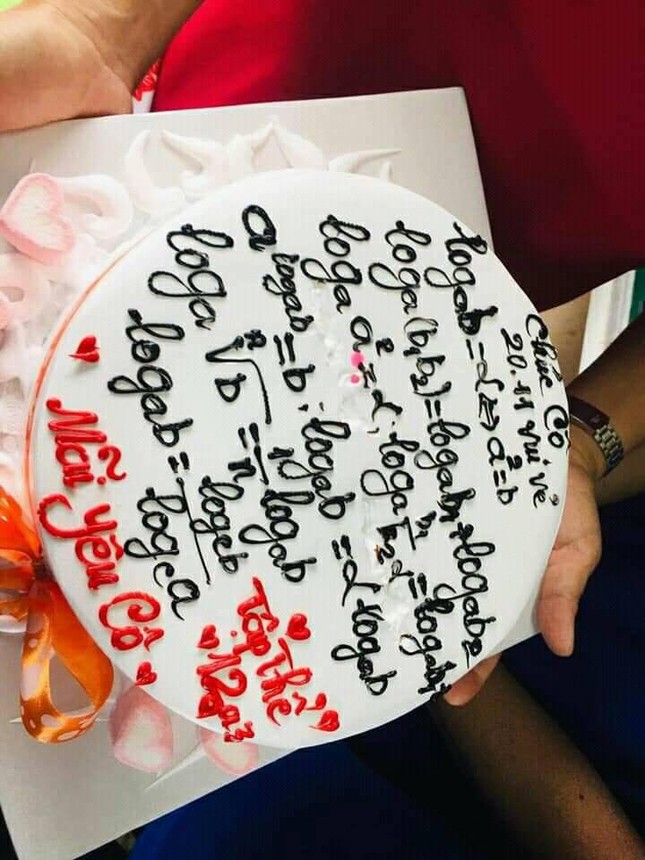 Chúc Cô
20.11 vui vẻ
logab = α ⇔ a^α = b
loga(b1b2) = logab1 + logab2
loga a^α = α; loga b1/b2 = logab1
a^logab = b; logab^α = α logab
loga ⁿ√b = 1/n logab
logab = logcb/logca
Tập Thể
Mãi yêu Cô